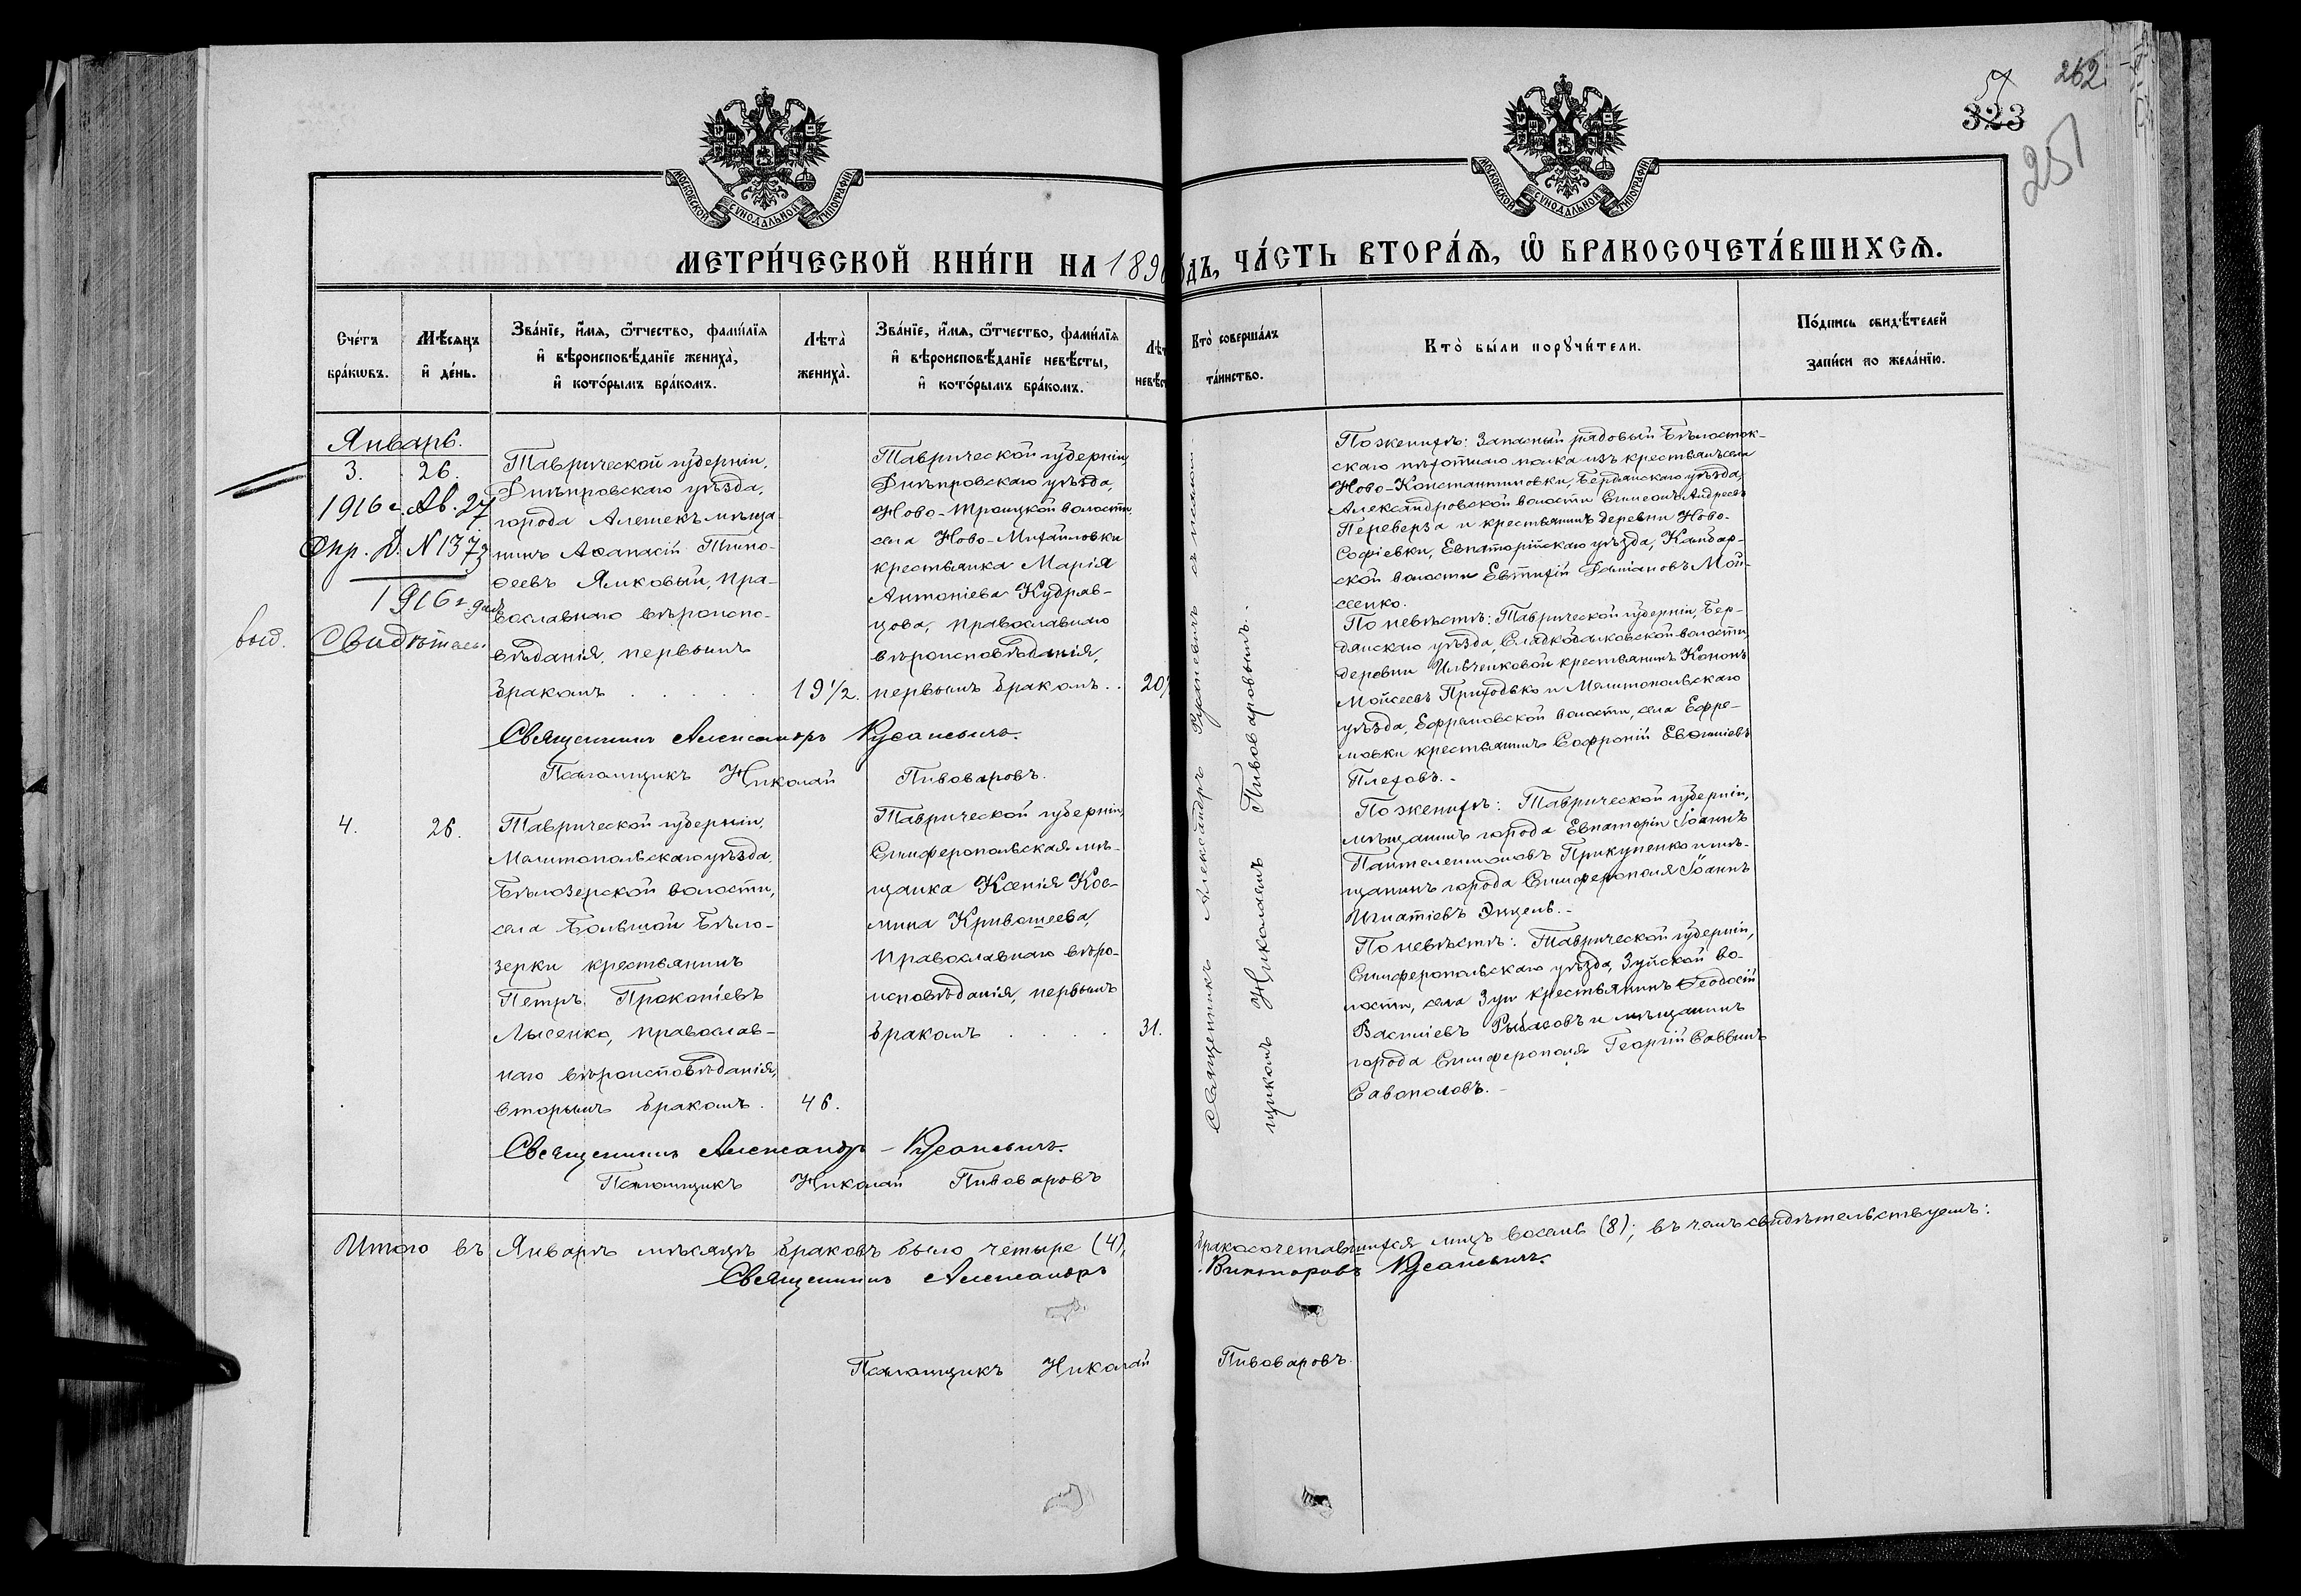 262
57
323
251
МОСКОВСКОЙ СУНОДАЛЬНОЙ ТИПОГРАФІИ
МОСКОВСКОЙ СУНОДАЛЬНОЙ ТИПОГРАФІИ
МЕТРИ́ЧЕСКОЙ КНИ́ГИ НА 189
ДЪ, ЧА́СТЬ ВТОРА́Я, Ѿ БРАКОСОЧЕТА́ВШИХСѦ.
Сче́тъ
бра́кѡвъ.
Мѣ́сяцъ
и҆ де́нь.
Зва́нїе, и҆́мя, ѻ҆́тчество, фами́лїя
и҆ вѣроисповѣ́данїе жениха̀,
и҆ кото́рымъ бра́комъ.
Лѣта̀
жениха̀.
Зва́нїе, и҆́мя, ѻ҆́тчество, фами́лїя
и҆ вѣроисповѣ́данїе невѣ́сты,
и҆ кото́рымъ бра́комъ.
Лѣт
невѣс
Кто̀ соверша́лъ
та́инство.
Кто̀ бы́ли порꙋчи́тели.
По́дпись свидѣ́телей
запи́си по жела́нїю.
Январь.
3.
26.
1916 г. Ав. 27
Опр. Д. N 1373
1916 г. дано
выд.
Свидѣтель
Таврической губерніи,
Днѣпровскаго уѣзда,
города Алешекъ мѣща-
нинъ Аѳанасій Тимо-
ѳеевъ Ямковый, пра-
вославнаго вѣроиспо-
вѣданія, первымъ
бракомъ
19½.
Таврической губерніи,
Днѣпровскаго уѣзда,
Ново-Троицкой волости,
села Ново-Михайловки
крестьянка Марія
Антоніева Кудряв-
цова, православнаго
вѣроисповѣданія,
первымъ бракомъ
20
Священникъ Александръ Русаневичъ.
Псаломщикъ Николай Пивоваровъ.
Священникъ Александръ Русаневичъ съ псалом-
щикомъ Николаемъ Пивоваровымъ.
По женихѣ: Запасный рядовый Бѣлосток-
скаго пѣхотнаго полка изъ крестьянъ села
Ново-Константиновки, Бердянскаго уѣзда,
Александровской волости Симеонъ Андреевъ
Переверза и крестьянинъ деревни Ново-
Софіевки, Евпаторійскаго уѣзда, Камбар-
ской волости Евтихій Даміановъ Мой-
сеенко.
По невѣстѣ: Таврической губерніи, Бер-
дянскаго уѣзда, Сладкобалковской волости,
деревни Ильченковой крестьянинъ Кононъ
Мойсеевъ Приходько и Мелитопольскаго
уѣзда, Ефремовской волости, села Ефре-
мовки крестьянинъ Софроній Евфиміевъ
Плеховъ.
4.
26.
Таврической губерніи,
Мелитопольскаго уѣзда,
Бѣлозерской волости,
села Большой Бѣло-
зерки крестьянинъ
Петръ Прокопіевъ
Лысенко, православ-
наго вѣроисповѣданія,
вторымъ бракомъ.
46.
Таврической губерніи,
Симферопольская мѣ-
щанка Ксенія Кос-
мина Кривошеева,
православнаго вѣро-
исповѣданія, первымъ
бракомъ
31.
По женихѣ: Таврической губерніи,
мѣщанинъ города Евпаторіи Іоаннъ
Пантелеимоновъ Прикупенко и мѣ-
щанинъ города Симферополя Іоаннъ
Игнатіевъ Энгель.
По невѣстѣ: Таврической губерніи,
Симферопольскаго уѣзда, Зуйской во-
лости, села Зуи крестьянинъ Ѳеодосій
Василіевъ Рыбасовъ и мѣщанинъ
города Симферополя Георгій Саввинъ
Савополовъ.
Священникъ Александръ Русаневичъ.
Псаломщикъ Николай Пивоваровъ
Итого въ Январѣ мѣсяцѣ браковъ было четыре (4),
бракосочетавшихся лицъ восемь (8); въ чемъ свидѣтельствуемъ:
Священникъ Александръ
Викторовъ Русаневичъ.
Псаломщикъ Николай
Пивоваровъ.